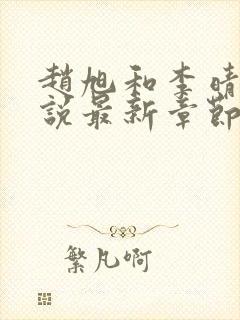 趙旭和李晴
說最新章節
繁凡啊